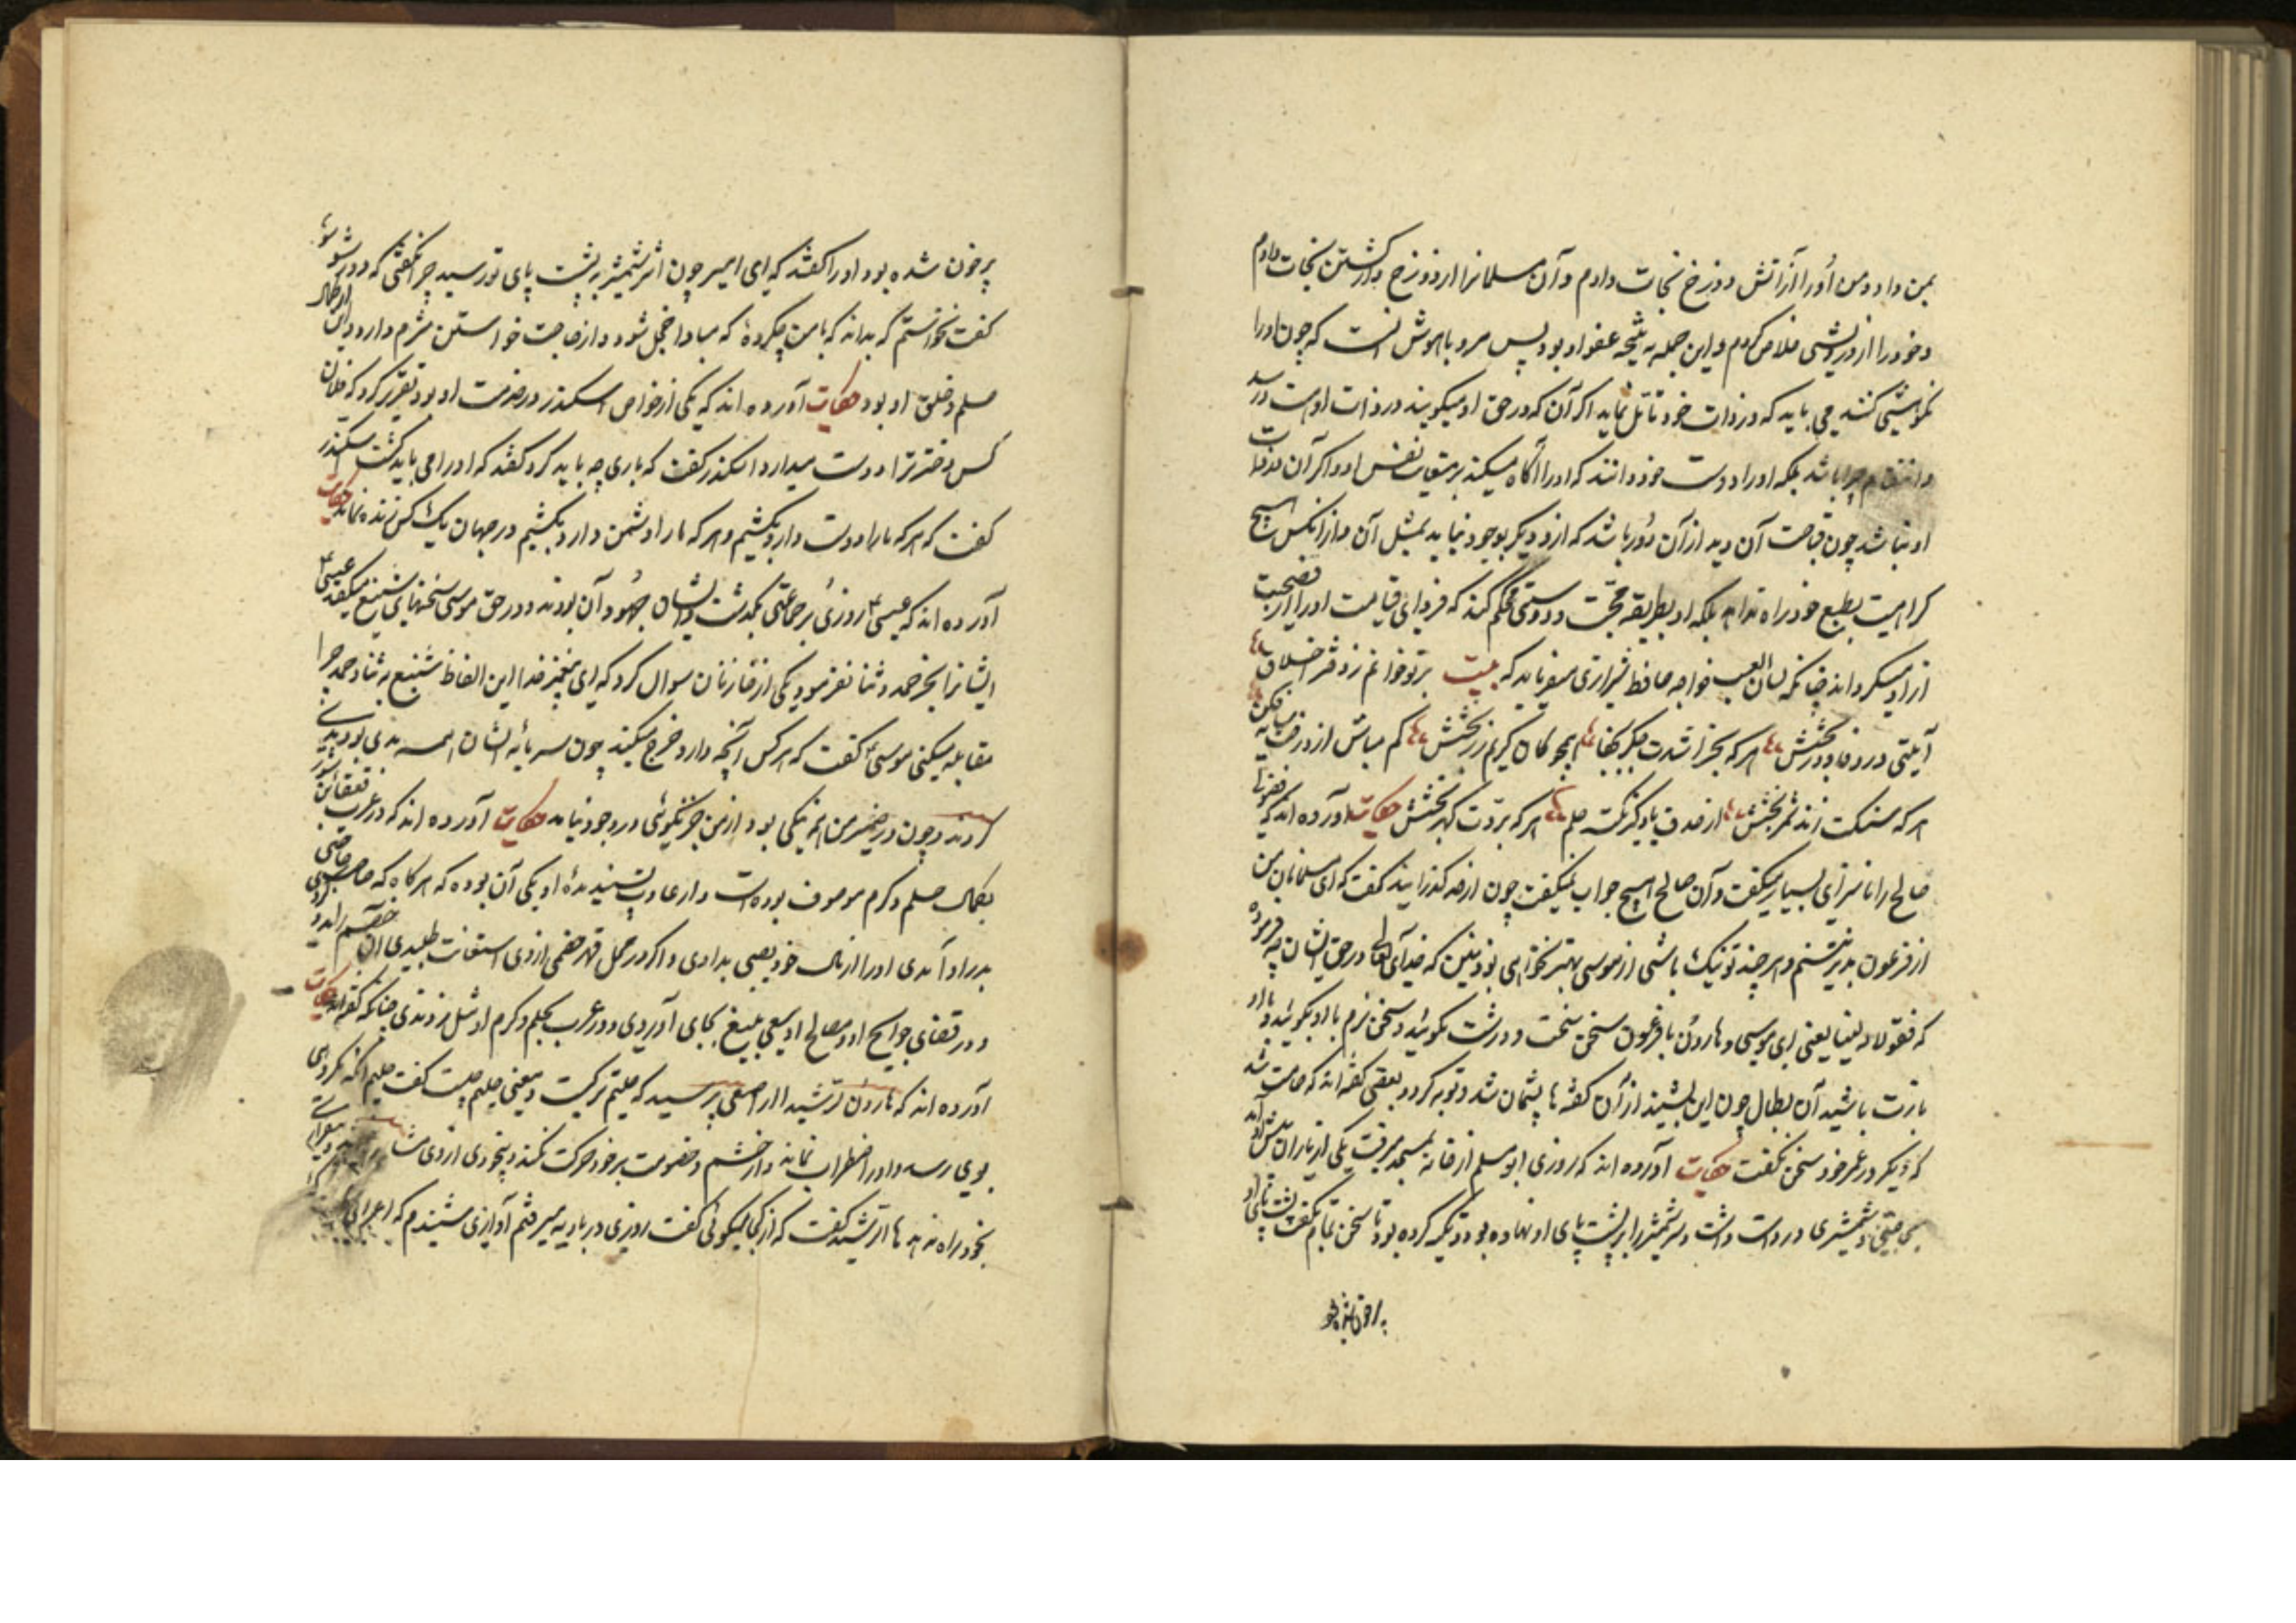 بمن داد و من اورا از آتش دوزخ نجات دادم و آن مسلمانرا از دوزخ و از کشتن نجات دادم
و خود را از درویشی خلاص کردم و این جمله نتیجه عفو او بود پس مرد باهوش آنست که چون اورا
نکوهشی کنند می باید که در ذات خود تامل نماید اگر آن که در حق او میگویند در ذات اوست در
و انتقام چرا باشد بلکه اورا دوست خود دانند که اورا آگاه میکند بر نفس او و اگر آن در ذات
او نباشد چون قباحت آن دید از آن دور باشد که از و دیگر بوجود نیاید بمثل آن و از آنکس هیچ
کراهیت بطبع خود راه نداند بلکه او بطریقه محبت و دوستی محکم کند که فردای قیامت اورا از فضیحت
ازاد میگرداند چنانکه لسان الغیب خواجه حافظ شیرازی میفرماید که بیت بر تو خوانم ز دفتر اخلاق
آیتی در وفا و در بخشش هر که بخراشدت جگر بجفا همچو کان کریم زر بخشش کم مباش از درخت سایه فکن
هر که سنگت زند ثمر بخشش از صدف یاد گیر نکته حلم هر که برد سرت گهر بخشش حکایت آورده اند که
صالح را ناسزای بسیار میگفت و آن صالح هیچ جواب نمیگفت چون از حد گذرانید گفت که ای مسلمانان من
از فرعون بدتر نیستم و هر چند تو نیک باشی از موسی بهتر نخواهی بود ببین که خدای تعالی در حق ایشان چه فرموده
که فقولا له لینا یعنی ای موسی و هارون با فرعون سخن سخت و درشت مگوئید و سخن نرم با او بگوئید و با او
باشید آن بطال چون این بشنید از آن گفته ها پشیمان شد و توبه کرد و بعضی گفته اند که خاموش شد
که دیگر در عمر خود سخن نگفت حکایت آورده اند که روزی ابو مسلم از خانه بمسجد میرفت یکی از یاران پیش آمد
و شمشیری در دست داشت و سر شمشیر را بر پشت پای او نهاده بود و تکیه کرده بود تا سخن تمام گفت پشت پای او
پر خون شده بود
پر خون شده بود اورا گفتند که ای امیر چون اثر شمشیر به پشت پای تو رسید چرا نگفتی که دور شو
گفت نخواستم که بداند که با من چه کرده که مبادا خجل شود و از حاجت خواستن شرم دارد و این از کمال
حلم و خلق او بود حکایت آورده اند که یکی از خواص اسکندر در خدمت او بود تقریر کرد که فلان
کس دختر ترا دوست میدارد اسکندر گفت که باری چه باید کرد گفتند که اورا می باید کشت اسکندر
گفت که هر که مارا دوست دارد بکشیم و هر که مارا دشمن دارد بکشیم در جهان یک کس زنده نماند حکایت
آورده اند که عیسی روزی بر جماعتی بگذشت و ایشان جهودان بودند و در حق موسی سخنهای شنیع میگفتند عیسی
ایشانرا بجز حمد و ثنا نفرمود یکی از سوال کرد که ای پیغمبر خدا این الفاظ شنیع به ثنا و حمد چرا
مقابله میکنی موسی گفت که هر کس آنچه دارد خرج میکند چون سرمایه ایشان همه بدی بود بدی
کردند و چون در ضمیر من همه نیکی بود از من جز نیکوئی در وجود نیامد حکایت آورده اند که در عرب
بکمال حلم و کرم موصوف بوده است و از عادت پسندیده او یکی آن بوده که هر گاه که صاحب
بدر او آمدی اورا از مال خود نصیبی بدادی و اگر در محل قهر خصمی از وی استعانت طلبیدی آن خصم
و در قضای حوایج او و مصالح او سعی بلیغ بجای آوردی و در عرب بحلم و کرم او مثل زدندی چنانکه گفته اند حکایت
آورده اند که هارون الرشید از اصمعی پرسید که حلیم تر کیست و معنی حلیم چیست گفت حلیم آنکه
بوی رسد و اورا اضطراب نماند و از خشم و خصومت بر خود حرکت نکند و بیخودی از وی
بخود راه ندهد هارالرشید گفت که از کجا میگوئی گفت روزی در بادیه میرفتم آوازی شنیدم که اعرابی